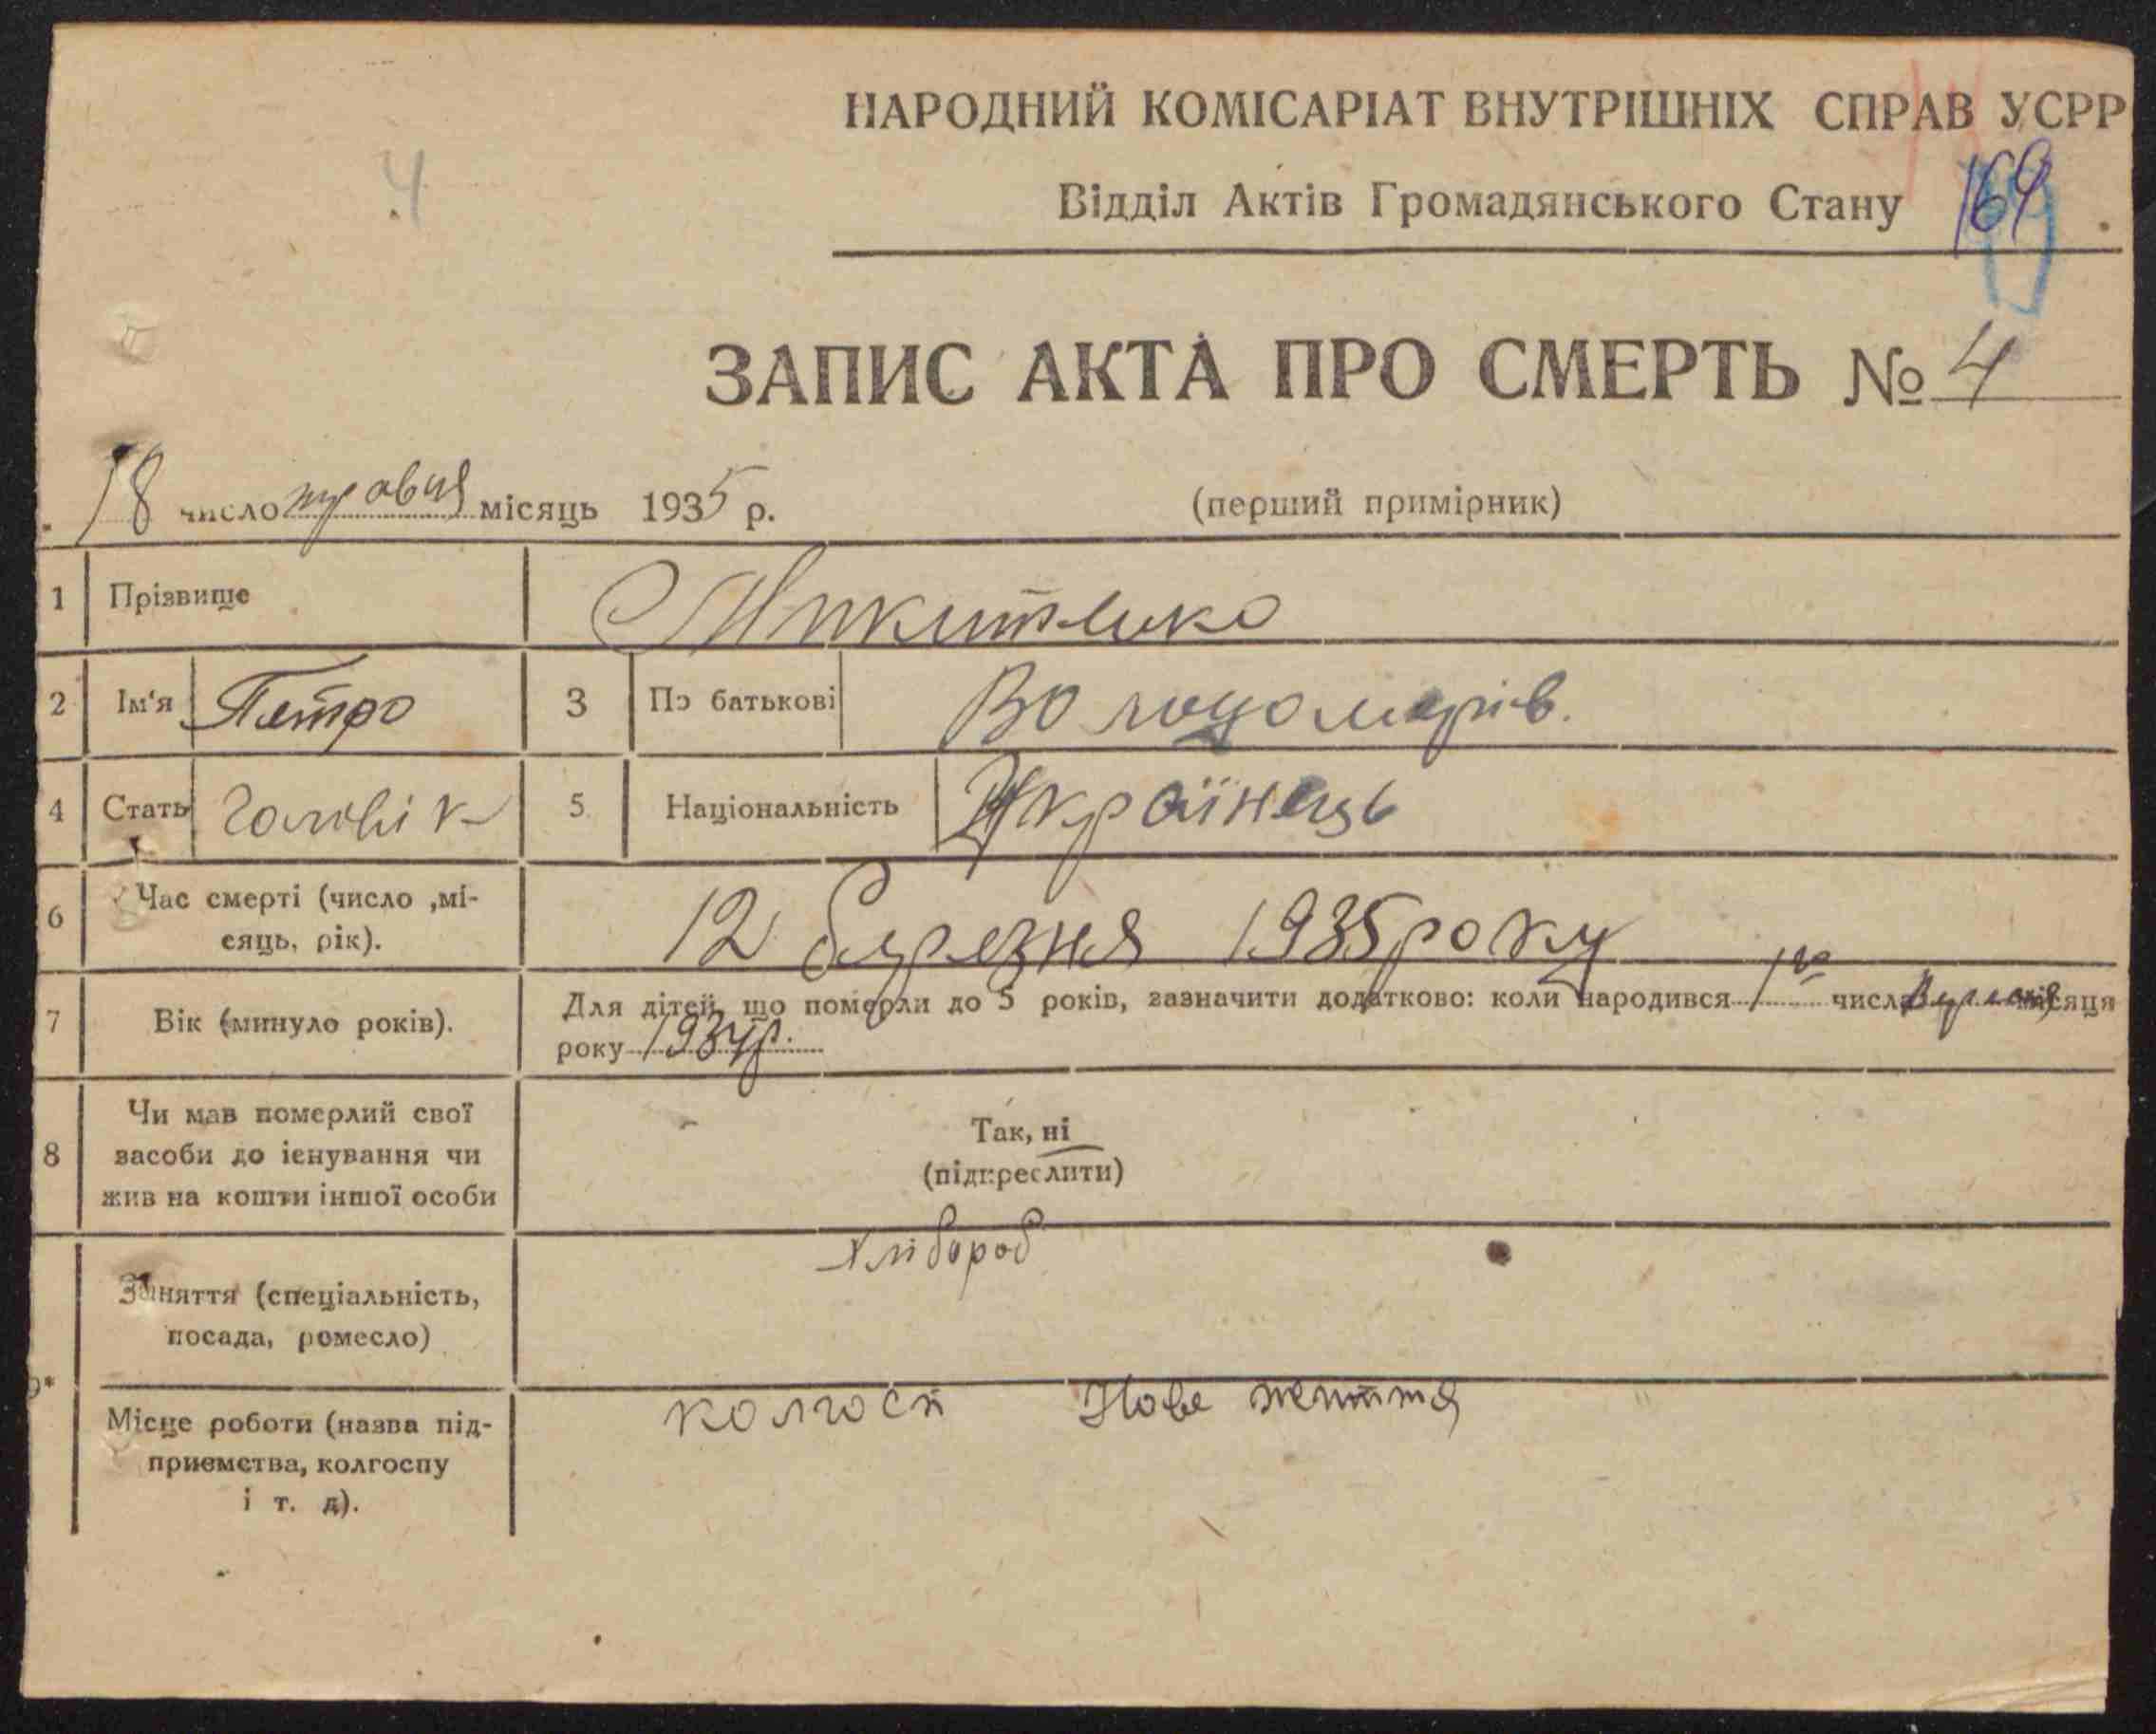 НАРОДНИЙ КОМІСАРІАТ ВНУТРІШНІХ СПРАВ УСРР
4
Відділ Актів Громадянського Стану 169
ЗАПИС АКТА ПРО СМЕРТЬ № 4
18 число травня місяць 1935 р.
(перший примірник)
1 Прізвище Микитенко
2 Ім'я Петро 3 По батькові Володимирів.
4 Стать Чоловік 5 Національність Українець
6 Час смерті (число ,мі-
сяць, рік).
12 березня 1935 року
7 Вік (минуло років).
Для дітей, що померли до 5 років, зазначити додатково: коли народився 1го числа місяця
року 1934 р.
8 Чи мав померлий свої
засоби до існування чи
жив на кошти іншої особи
Так, ні
(підкреслити)
9* Заняття (спеціальність,
посада, ромесло)
Хлібороб
Місце роботи (назва під-
приємства, колгоспу
і т. д).
колгосп Нове життя